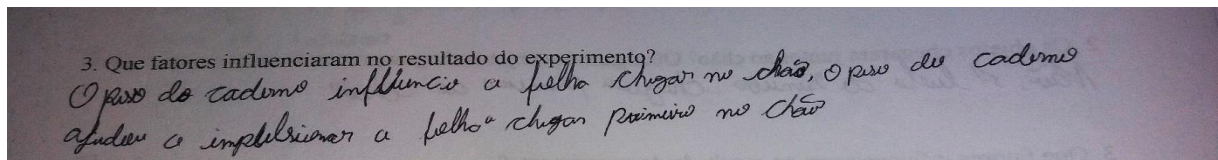 3. Que fatores influenciaram no resultado do experimento?
O peso do caderno influencio a folha chegar no chão, o peso do caderno
ajudou a impulsionar a folha a chegar primeiro no chão